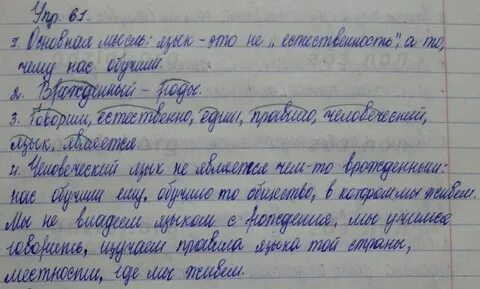 Упр. 61.
1. Основная мысль: язык - это не „естественность", а то,
чему нас обучили.
2. Врожденный - роды.
3. Говорим, естественно, один, правило, человеческий,
язык, является.
4. Человеческий язык не является чем-то врожденным:
нас обучили ему. обучило то общество, в котором мы живем.
Мы не владеем языком с рождения, мы учимся
говорить, изучаем правила языка той страны,
местности, где мы живем.